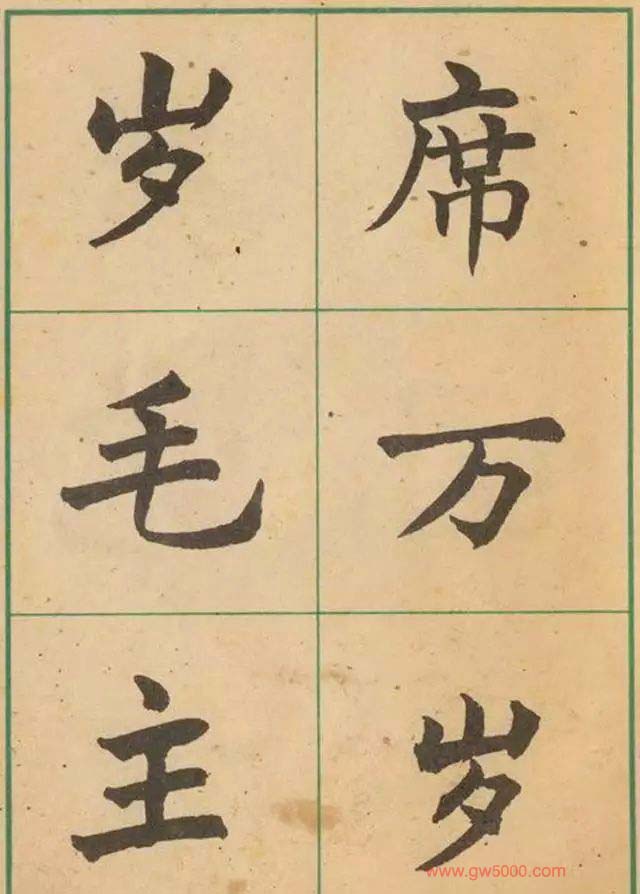 席万岁
岁毛主
www.gw5000.com